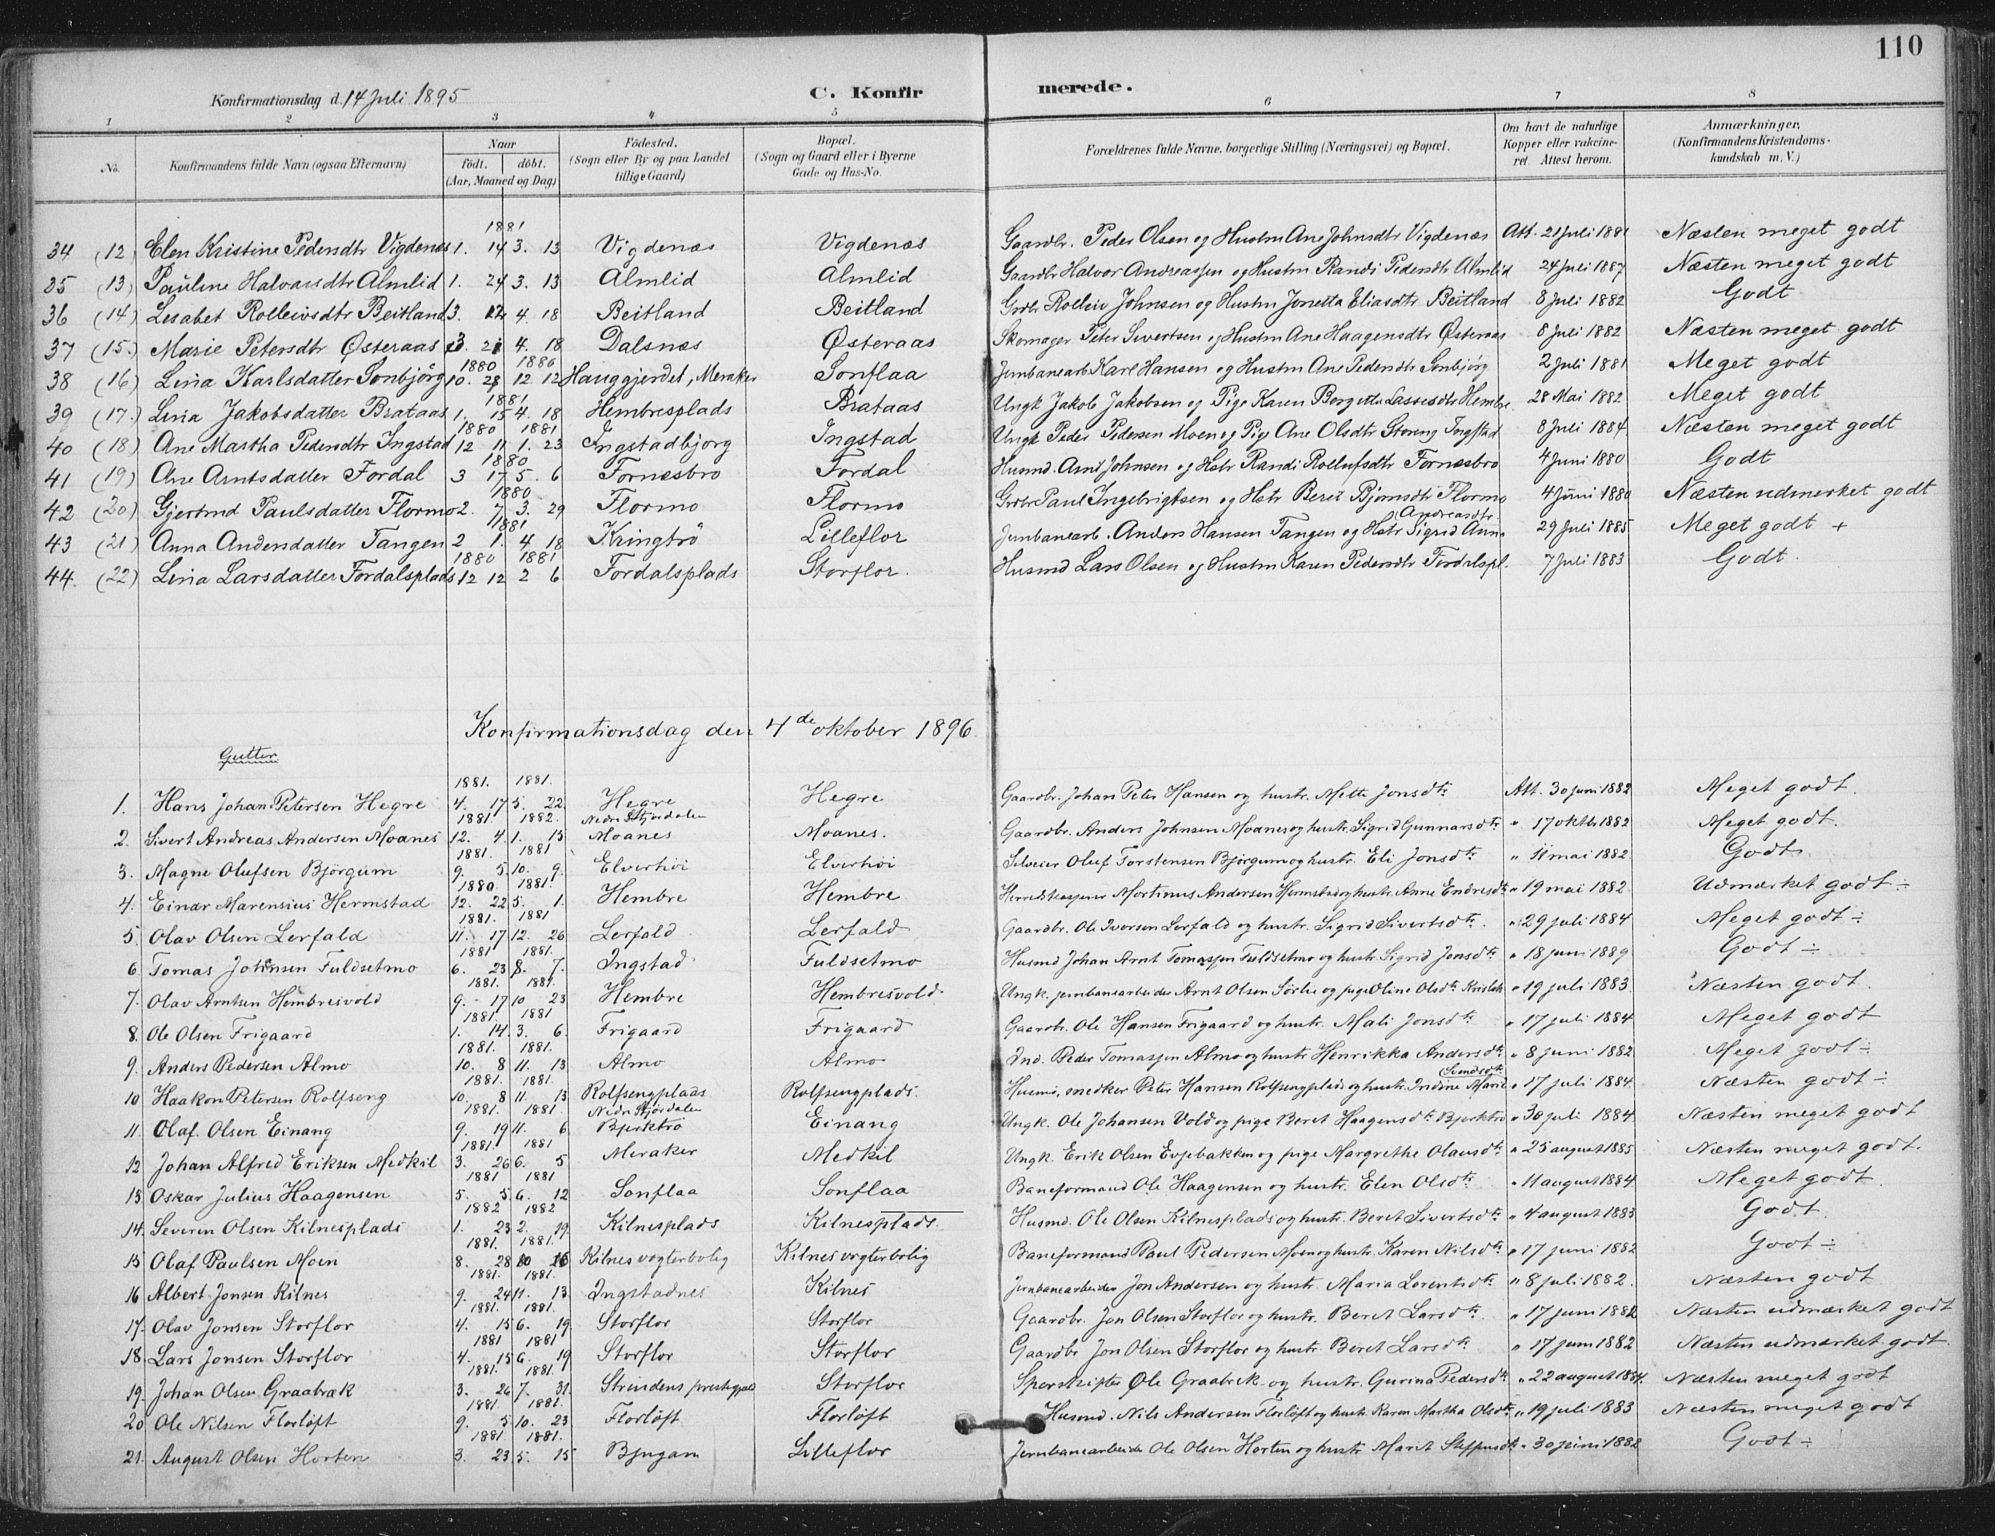 110
Konfirmationsdag d. 14 Juli 1895 C. Konfir merede.
1 2 3 4 5 6 7 8
No. Konfirmandens fulde Navn (ogsaa Efternavn) Naar født. døbt. (Aar, Maaned og Dag) Fødested. (Sogn eller By og paa Landet tillige Gaard) Bopæl. (Sogn og Gaard eller i Byerne Gade og Hus-No. Forældrenes fulde Navne, borgerlige Stilling (Næringsvei) og Bopæl. Om havt de naturlige Kopper eller vakcineret. Attest herom. Anmærkninger. (Konfirmandens Kristendomskundskab m. V.)
1881
34 (12) Elen Kristine Pedersdtr Vigdenæs 1. 14 3. 13 Vigdenæs Vigdenæs Gaardbr. Peder Olsen og Hustru Ane Johnsdtr Vigdenæs Att. 21 Juli 1881 Næsten meget godt
35 (13) Pauline Halvarsdtr Almlid 1. 24 3. 13 Almlid Almlid Gaardbr Halvor Andreassen og Hustru Randi Pedersdtr Almlid 24 Juli 1887 Næsten meget godt
36 (14) Lesabet Rolleivsdtr Beitland 3. 12 4. 18 Beitland Beitland Grdbr Rolleiv Johnsen og Hustru Jonetta Eliasdtr Beitland 8 Juli 1882 Godt
37 (15.) Marie Petersdtr Østeraas 3 21 4. 18 Dalsnæs Østeraas Skomager Peter Sivertsen og Hustru Ane Haagensdtr Østeraas 8 Juli 1882 Næsten meget godt
1880 1880
38 (16) Lina Karlsdatter Sonbjørg 10. 28 12 12 Hauggjerdet, Meraker Sonflaa Jernbanearb Karl Hansen og Hustru Ane Pedersdtr Sonbjörg 2 Juli 1881 Meget godt
1881
39 (17.) Lina Jakobsdatter Brataas 1. 15 4. 18 Hembresplads Brataas Ungk Jakob Jakobsen og Pige Karen Borgitte Lassesdtr Hembre 28 Mai 1882 Meget godt
1880 1881
40 (18) Ane Martha Pedersdtr Ingstad 12 11 1. 23 Ingstadbjörg Ingstad Ungk Peder Pedersen Moen og Pige Ane Olsdtr Ingstad 8 Juli 1884. Næsten meget godt
1880
41 (19) Ane Arntsdatter Fordal 3 17 5. 6 Fornesbro Fordal Husmd. Arnt Johnsen og Hstr Randi Rollufsdtr Fornesbro 4 Juni 1880 Godt
1880
42 (20) Gjertrud Paulsdatter Flormo 2. 7 3. 29 Flormo Flormo Grdbr Paul Ingebrigtsen og Hstr Beret Bjørnsdtr Flormo 4 Juni 1880 Næsten udmerket godt
1881 (Andreasdtr
43 (21) Anna Andersdatter Tangen 2 1. 4 18 Kringtrö Lilleflor Jernbanearb. Anders Hansen Tangen og Hstr Sigrid Ann. 29 Juli 1885 Meget godt +
1880 1881
44. (22) Lina Larsdatter Fordalsplads 12 12 2 6 Fordalsplads Storflor. Husmd Lars Olsen og Hustru Karen Pedersdtr Fordalspl. 7 Juli 1883 Godt.
Konfirmationsdag den 4de oktober 1896
Gutter
1881. 1881.
1. Hans Johan Petersen Hegre 4. 17 5. 22. Hegre Hegre Gaardbr. Johan Peter Hansen og hustr. Mette Jonsdtr Att. 30 juni 1882 Meget godt.
1881 1882. Nedre Stjørdalen
2. Sivert Andreas Andersen Moanes 12. 4 1. 15 Moanes Moanes. Gaardbr. Anders Johnsen Moanes og hustr. Sigrid Gunnarsdtr " 17 oktb. 1882 Meget godt.
1881. 1881
3. Magne Olufsen Björgum 9. 5 10. 9. Elverhöi Elverhöi Oluf Torstensen Björgum og hustr. Eli Jonsdtr " 11 mai 1882. Godt
1880. 1881.
4. Einar Marensius Hermstad 12. 22 5. 1. Hembre Hembre Herredskasserer Martinus Andersen Hermstad og hustr. Anne Endresdtr " 19 mai 1882. Udmærket godt ÷
1881. 1881
5. Olav Olsen Lerfald 11. 17 12. 26 Lerfald Lerfald Gaardbr. Ole Iversen Lerfald og hustr. Sigrid Sivertsdtr. " 29 juli 1884 Meget godt ÷
1881 1881.
6. Tomas Johansen Fuldsetmo 6. 23 8. 7. Ingstad Fuldsetmo Husmd Johan Arnt Tomassen Fuldsetmo og hustr. Sigrid Jonsdtr " 18 juni 1889 Godt ÷
1881. 1881.
7. Olav Arntsen Hembresvold 9. 17 10 23 Hembre Hembresvold. Ungk. jernbanearbeider Arnt Olsen Sørlie og pige Oline Olsdtr " 19 juli 1883. Næsten godt.
1881. 1881
8. Ole Olsen Frigaard 1. 14. 3. 6. Frigaard Frigaard Gaardbr. Ole Hansen Frigaard og hustr. Mali Jonsdtr " 17 juli 1884 Meget godt
1881. 1881.
9. Anders Pedersen Almo 10. 8 11. 13 Almo Almo Ind. Peder Tomassen Almo og hustr. Henrikka Andersdtr " 8 juni 1882 Meget godt ÷
1881. 1881.
10 Haakon Petersen Rolfseng 10. 8 11. 13 Rolfsengplads Rolfsengplads. Husmd, snedker Peter Hansen Rolfsengplads og hustr. Indine Marie " 17 juli 1884. Næsten godt ÷
1881. 1881. Nedre Stjørdalen
11. Olaf. Olsen Einang 9. 19 11. 6 Bjerktrö Einang Ungk. Ole Johansen Vold og pige Beret Haagensdtr Bjerktrö " 30 juli 1884 Næsten meget godt
1881. 1881
12 Johan Alfred Eriksen Medkil 3. 26 6. 5 Meraker Medkil Ungk. Erik Olsen Evjebakken og pige Margrethe Olausdtr " 25 august 1885 Næsten meget godt.
1881 1881
13 Oskar Julius Haagensen 5. 5 6. 12 Sonflaa Sonflaa Baneformand Ole Haagensen og hustr. Elen Olsdtr " 11 august 1884 Meget godt.
1882 1882
14. Severin Olsen Kilnesplads 1. 23 2. 19. Kilnesplads Kilnesplads. Husmd. Ole Olsen Kilnesplads og hustr. Beret Sivertsdtr " 4 august 1883 Godt.
1881. 1881.
15 Olaf Paulsen Moen 8. 28 10 16 Kilnes vogterbolig Kilnes vogterbolig Baneformand Paul Pedersen Moen og hustr. Karen Nilsdtr " 17 juni 1882 Godt ÷
1881. 1881.
16 Albert Jonsen Kilnes 9. 24 11. 13 Ingstadnes Kilnes Jernbanearbeider Jon Andersen og hustr. Maria Lorentsdtr " 8 juli 1882. Næsten godt
1881. 1881.
17. Olav Jonsen Storflor 4. 15 6. 19 Storflor Storflor Gaardbr. Jon Olsen Storflor og hustr. Beret Larsdtr " 17 juni 1882 Næsten udmærket godt
1881 1881
18. Lars Jonsen Storflor 4. 15 6. 19 Storflor Storflor Gaardbr Jon Olsen Storflor og hustr. Beret Larsdtr " 17 juni 1882 Næsten udmærket godt.
1881. 1881.
19. Johan Olsen Graabræk 3. 26 7. 31. Strindens prestegjæld Storflor Ole Graabræk og hustr. Gurina Pedersdtr " 22 august 1884. Næsten meget godt
1881. 1881.
20 Ole Nilsen Florlöft 9. 5 10. 23 Florlöft Florlöft Husmd. Nils Andersen Florlöft og hustr. Karen Martha Olsdtr " 19 juli 1883 Næsten meget godt
1881 1881.
21. August Olsen Horten 3. 23 5. 15 Bjugan Lilleflor Jernbanearbeider Ole Olsen Horten og hustr. Marit Steffensdtr " 30 juni 1882 Godt ÷